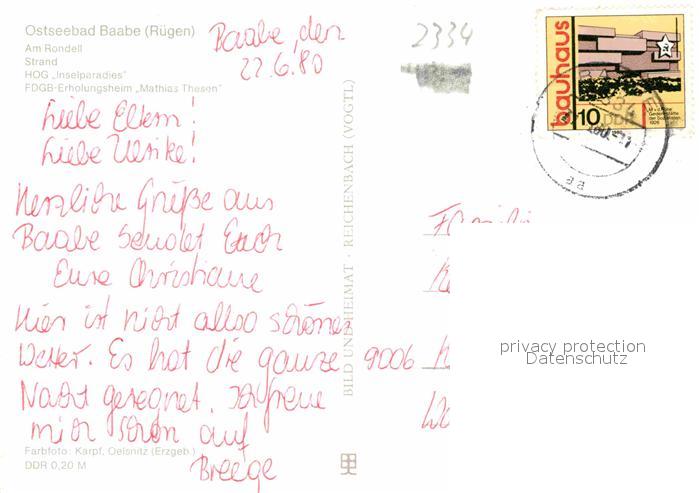 Ostseebad Baabe (Rügen)
Am Rondell
Strand
HOG „Inselparadies"
FDGB-Erholungsheim „Mathias Thesen"
Baabe, den
22.6.80
2334
Liebe Eltern!
Liebe Ulrike!
Herzliche Grüße aus
Baabe sendet Euch
Eure Christiane
Hier ist nicht allso schönes
Wetter. Es hat die ganze
Nacht geregnet. Ich freue
mich schon auf
Breege
Farbfoto: Karpf, Oelsnitz (Erzgeb.)
DDR 0,20 M
BILD UND HEIMAT · REICHENBACH (VOGTL)
bauhaus
10
DDR
Famili
9006
privacy protection
Datenschutz